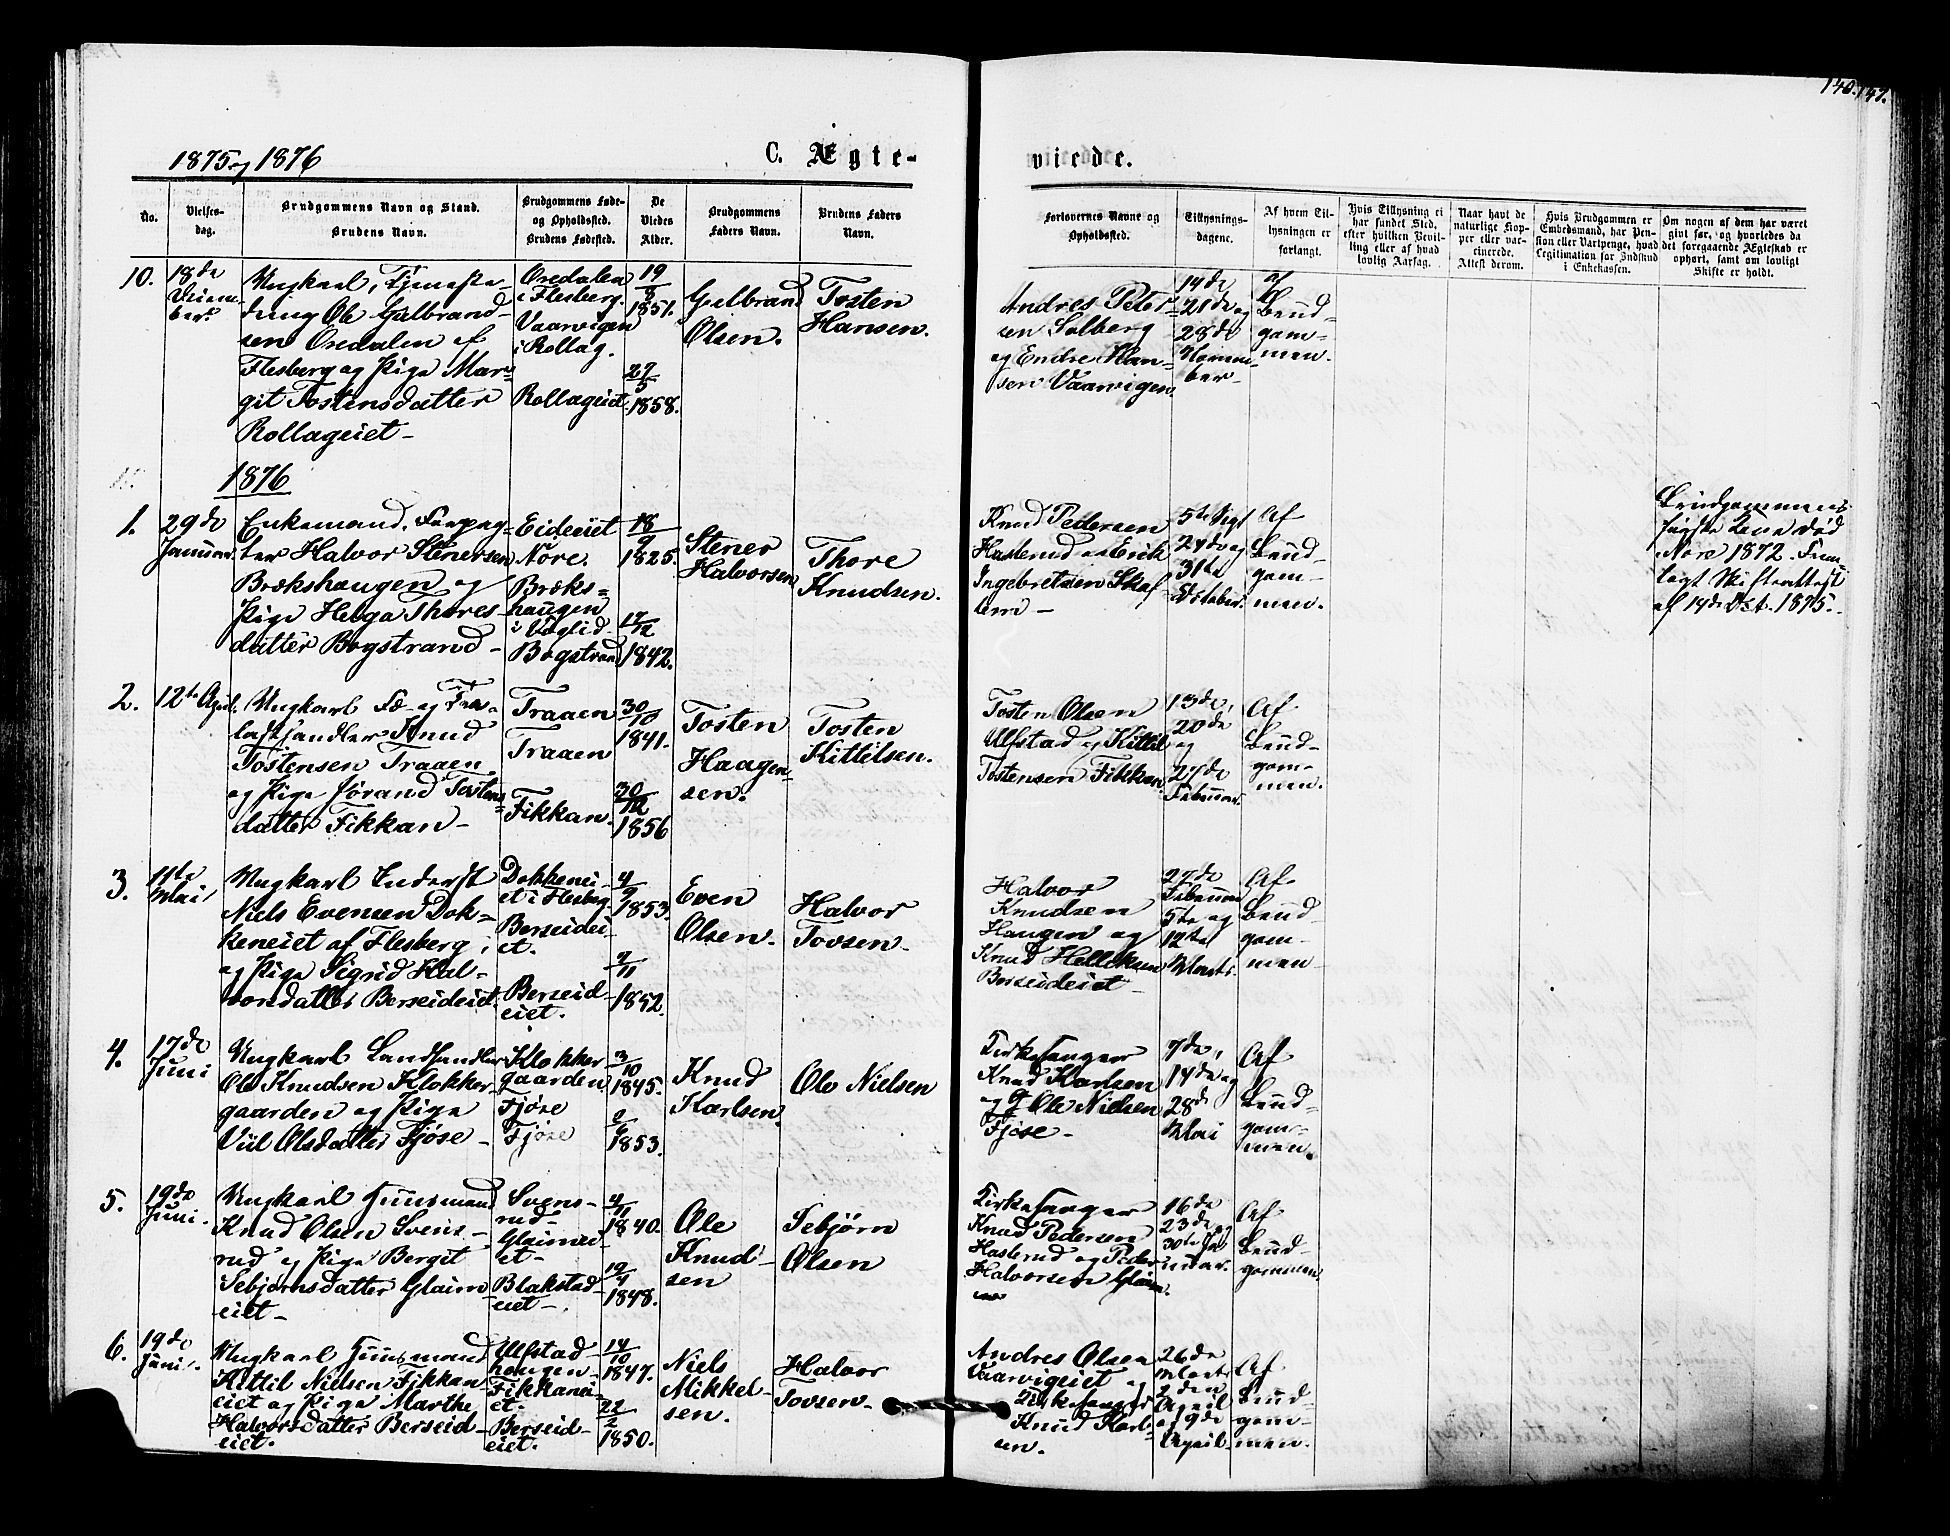 140. 147.
1875 og 1876
C. Ægte-
viede.
No.
Vielses-
dag.
Brudgommens Navn og Stand.
Brudens Navn.
Brudgommens Føde-
og Opholdssted.
Brudens Fødested.
De
Viedes
Alder.
Brudgommens
Faders Navn.
Brudens Faders
Navn.
Forlovernes Navne og
Opholdssted.
Tillysnings-
dagene.
Af hvem Til-
lysningen er
forlangt.
Hvis Tillysning ei
har fundet Sted,
efter hvilken Bevil-
ling eller af hvad
lovlig Aarsag.
Naar havt de
naturlige Kop-
per eller vac-
cinerede.
Attest derom.
Hvis Brudgommen er
Embedsmand, har Pen-
sion eller Vartpenge, hvad
Legitimation for Indskud
i Enkekassen.
Om nogen af dem har været
gift før, og hvorledes da
det foregaaende Ægteskab er
ophørt, samt om lovligt
Skifte er holdt.
10.
18de
Decem-
ber.
Ungkarl, Tjeneste-
dreng Ole Gulbrand-
sen Oredalen af
Flesberg og Pige Mar-
git Tostensdatter
Rollageiet -
Oredalen
i Flesberg.
Vaarvigen
i Rollag.
Rollageiet.
19/8
1851.
27/5
1858.
Gulbrand
Olsen.
Tosten
Hansen.
Andres Peter-
sen Solberg
og Endre Han-
sen Vaarvigen.
14de
21de og
28de
Novem-
ber -
af
Brud-
gom-
men.
1876
1.
29de
Januar
Enkemand. Forpag-
ter Halvor Stenersen
Brækshaugen og
Pige Helga Thores-
datter Bogstrand -
Eideiet
Nore.
Bræks-
haugen
i Veglid.
Bogstrand
18/9
1825.
17/12
1842.
Stener
Halvorsen
Thore
Knudsen.
Knud Pedersen
Haslerud og Erik
Ingebretsen Skaf-
tern -
24de og
31te
October.
Af
Brud-
gom-
men.
Brudgommens
første Kone død
Nore 1872. Frem-
lagt Skifteattest
af 14de Oct. 1875.
2.
12te April.
Ungkarl Fæ- og Tra-
lasthandler Knud
Tostensen Traaen
og Pige Jørand Tostens-
datter Fikkan -
Traaen
Traaen
Fikkan.
30/10
1841.
30/12
1856
Tosten
Haagen-
sen.
Tosten
Kittilsen.
Tosten Olsen
Ulfstad og Kittil
Tostensen Fikkan.
13de,
20de
og
27de
Februar.
Af
Brud-
gom-
men.
3.
11te
Mai
Ungkarl Inderst
Niels Evensen Dok-
keneiet af Flesberg,
og Pige Sigrid Hal-
vorsdatter Berseideiet.
Dokkenei-
et i Flesberg
Berseidei-
et.
Berseid-
eiet.
4/9
1853.
7/11
1852.
Even
Olsen.
Halvor
Tovsen -
Halvor
Knudsen
Haugen og
Knud Helleksen
Berseideiet -
27de
Februar
5te og
12te
Marts
Af
Brud-
gom-
men -
4.
17de
Juni
Ungkarl Landhandler
Ole Knudsen Klokker-
gaarden og Pige
Viil Olsdatter Fjøse -
Klokker-
gaarden
Fjøse
Fjøse
3/10
1845.
2/6
1853.
Knud
Karlsen.
Ole Nielsen
Kirkesanger
Knud Karlsen
og Ole Nielsen
Fjøse -
7de,
14de og
28de
Mai
Af
Brud-
gom-
men.
5.
19de
Juni.
Ungkarl Huusmand
Knud Olsen Svens-
rud og Pige Bergit
Sebjørnsdatter Glaim-
eiet -
Svens-
rud -
Glaimei-
et -
Blakstad-
eiet -
4/11
1840.
19/4
1848.
Ole
Knud-
sen
Sebjørn
Olsen
Kirkesanger
Knud Pedersen
Haslerud og Peder
Halvorsen Glaim.
16de
23de og
30te Ja-
nuar.
Af
Brud-
gommen.
6.
19de
Juni.
Ungkarl Huusmand
Kittil Nielsen Fikkan-
eiet og Pige Marthe
Halvorsdatter Berseid-
eiet.
Ulfstad-
haugen -
Fikkanei-
et.
Berseid-
eiet.
14/10
1847.
22/2
1850.
Niels
Mikkel-
sen.
Halvor
Tovsen -
Andres Olsen
Vaarvigeiet og
Kirkesanger
Knud Karl-
sen.
26de
Marts
2den
April
og 9de
April -
Af
Brud-
gom-
men.